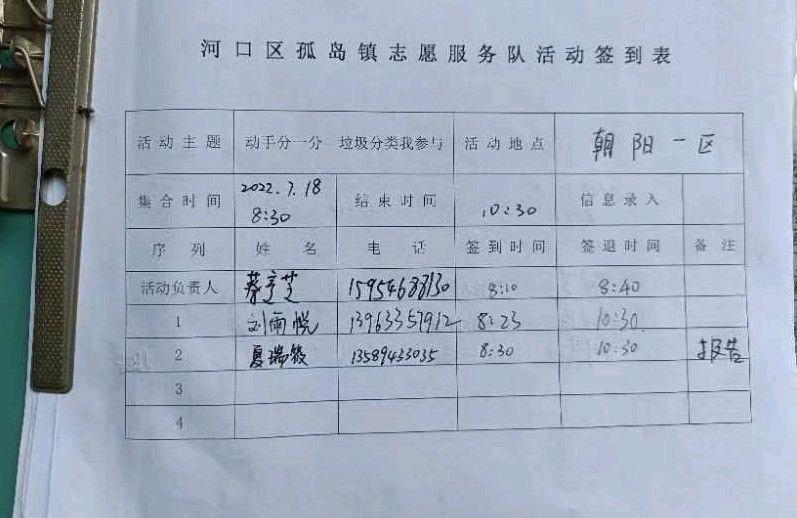 河口区孤岛镇志愿服务队活动签到表
活动主题 动手分一分 垃圾分类我参与 活动地点 朝阳一区
集合时间 2022.7.18 8:30 结束时间 10:30 信息录入
序列 姓名 电话 签到时间 签退时间 备注
活动负责人 蔡 芝 15954688130 8:10 8:40
1 刘雨悦 13963357912 8:23 10:30
2 夏瑞敏 13589433035 8:30 10:30 报告
3
4